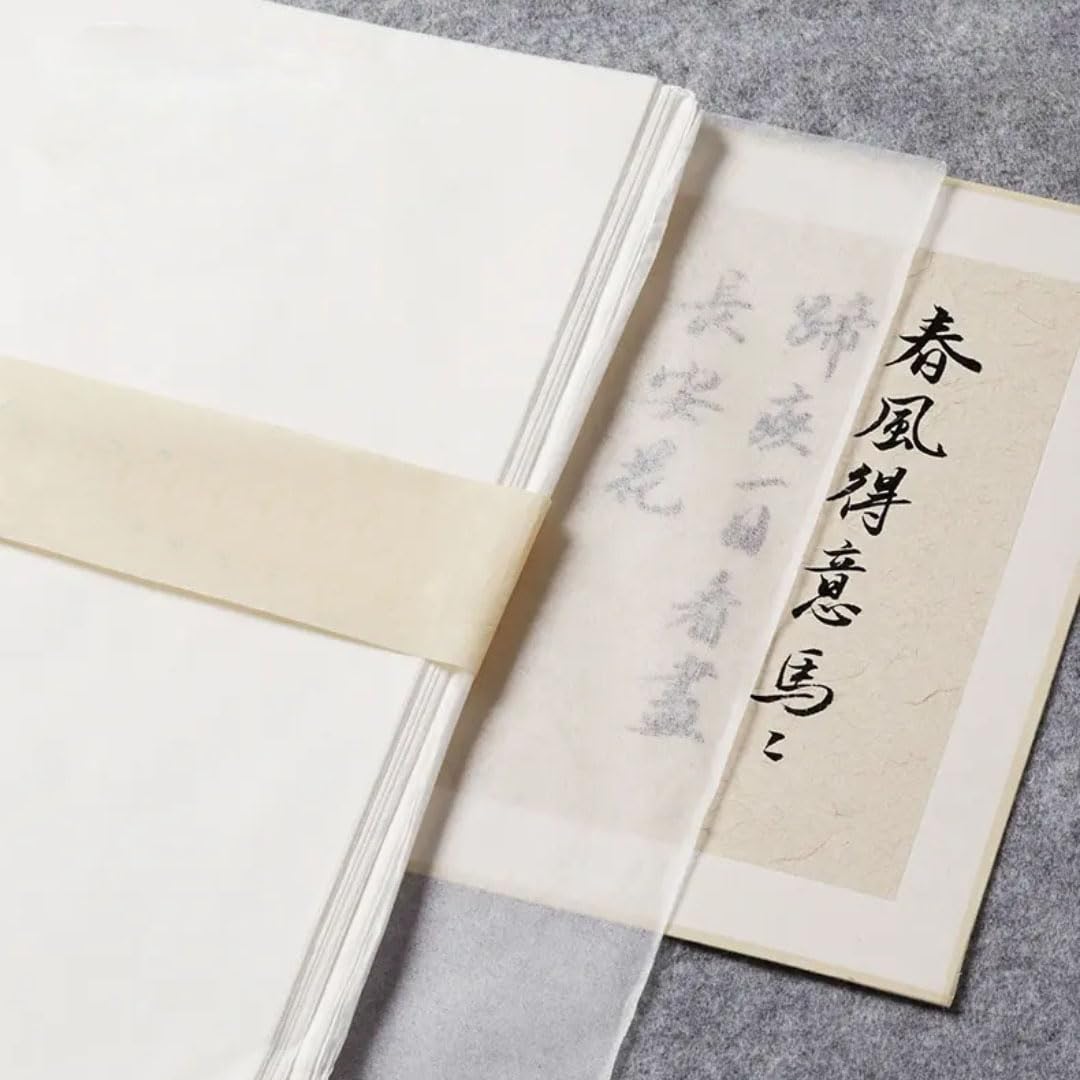 春風得意馬〻
蹄疾一日看盡
長安花